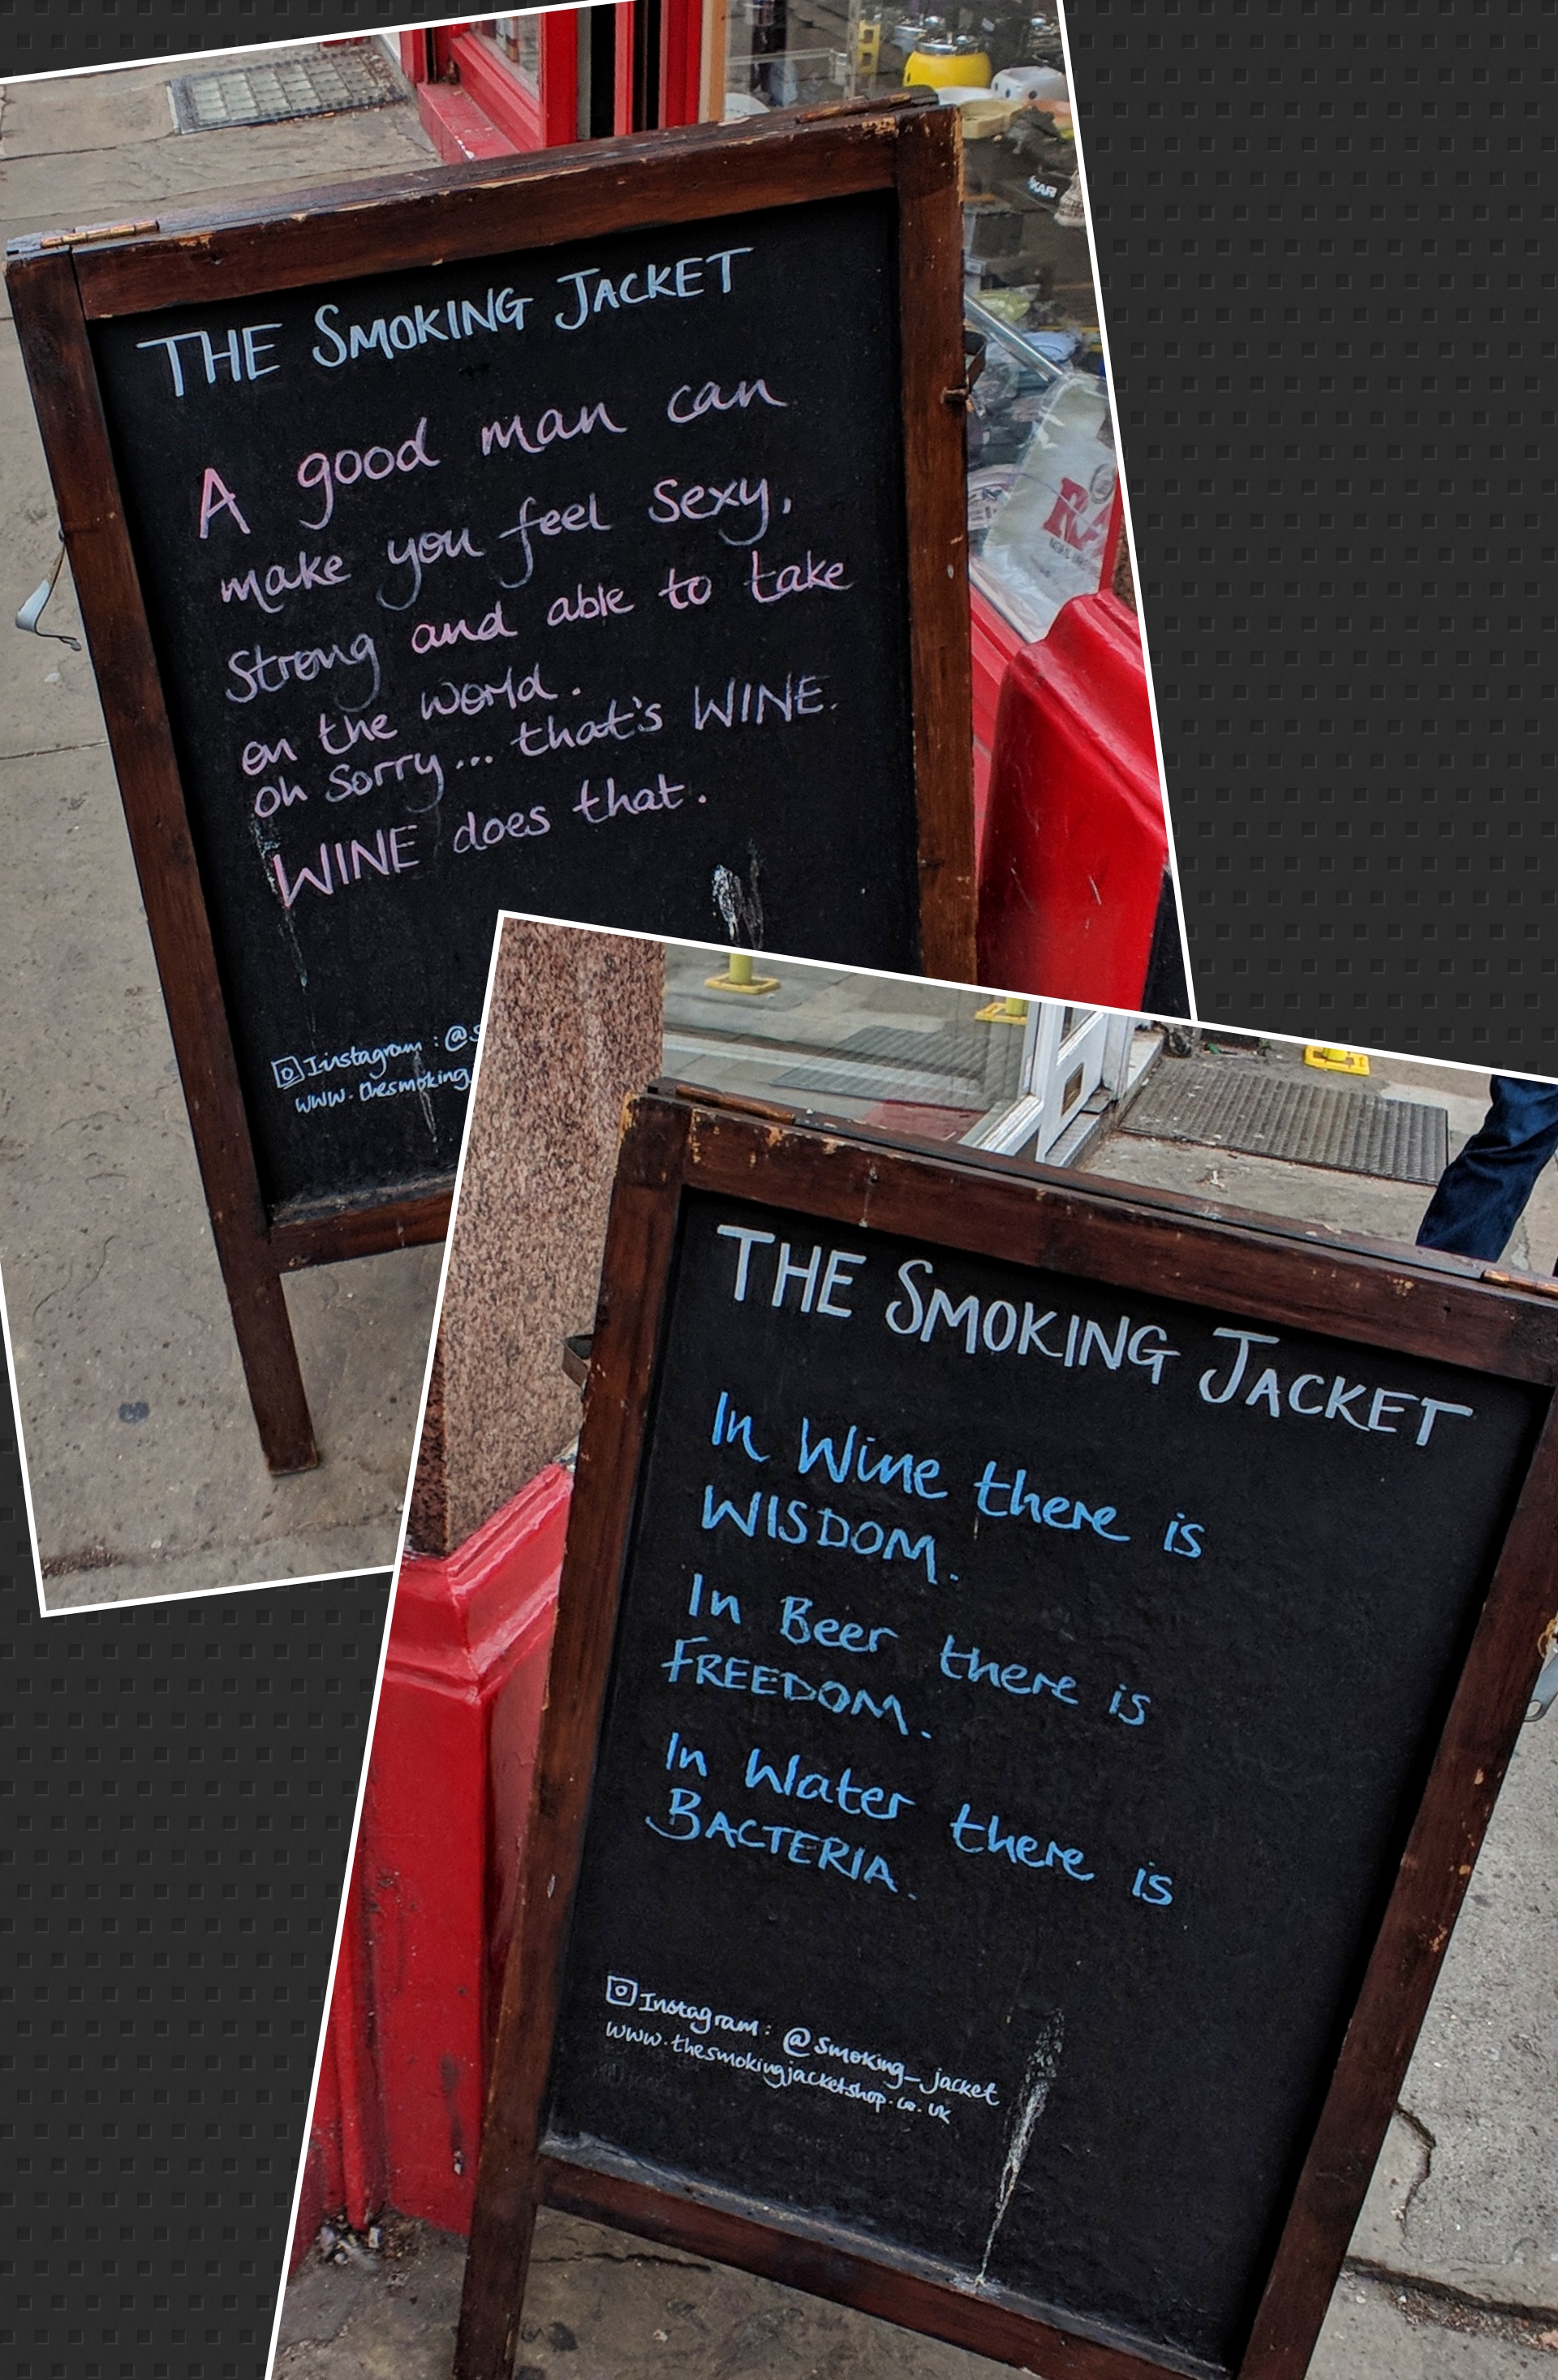 THE SMOKING JACKET
A good man can
make you feel sexy,
Strong and able to take
on the world.
oh Sorry... that's WINE.
WINE does that.
Instagram : @s
www.thesmoking
THE SMOKING JACKET
In Wine there is
WISDOM.
In Beer there is
FREEDOM.
In Water there is
BACTERIA.
Instagram : @smoking_jacket
www.thesmokingjacketshop.co.uk